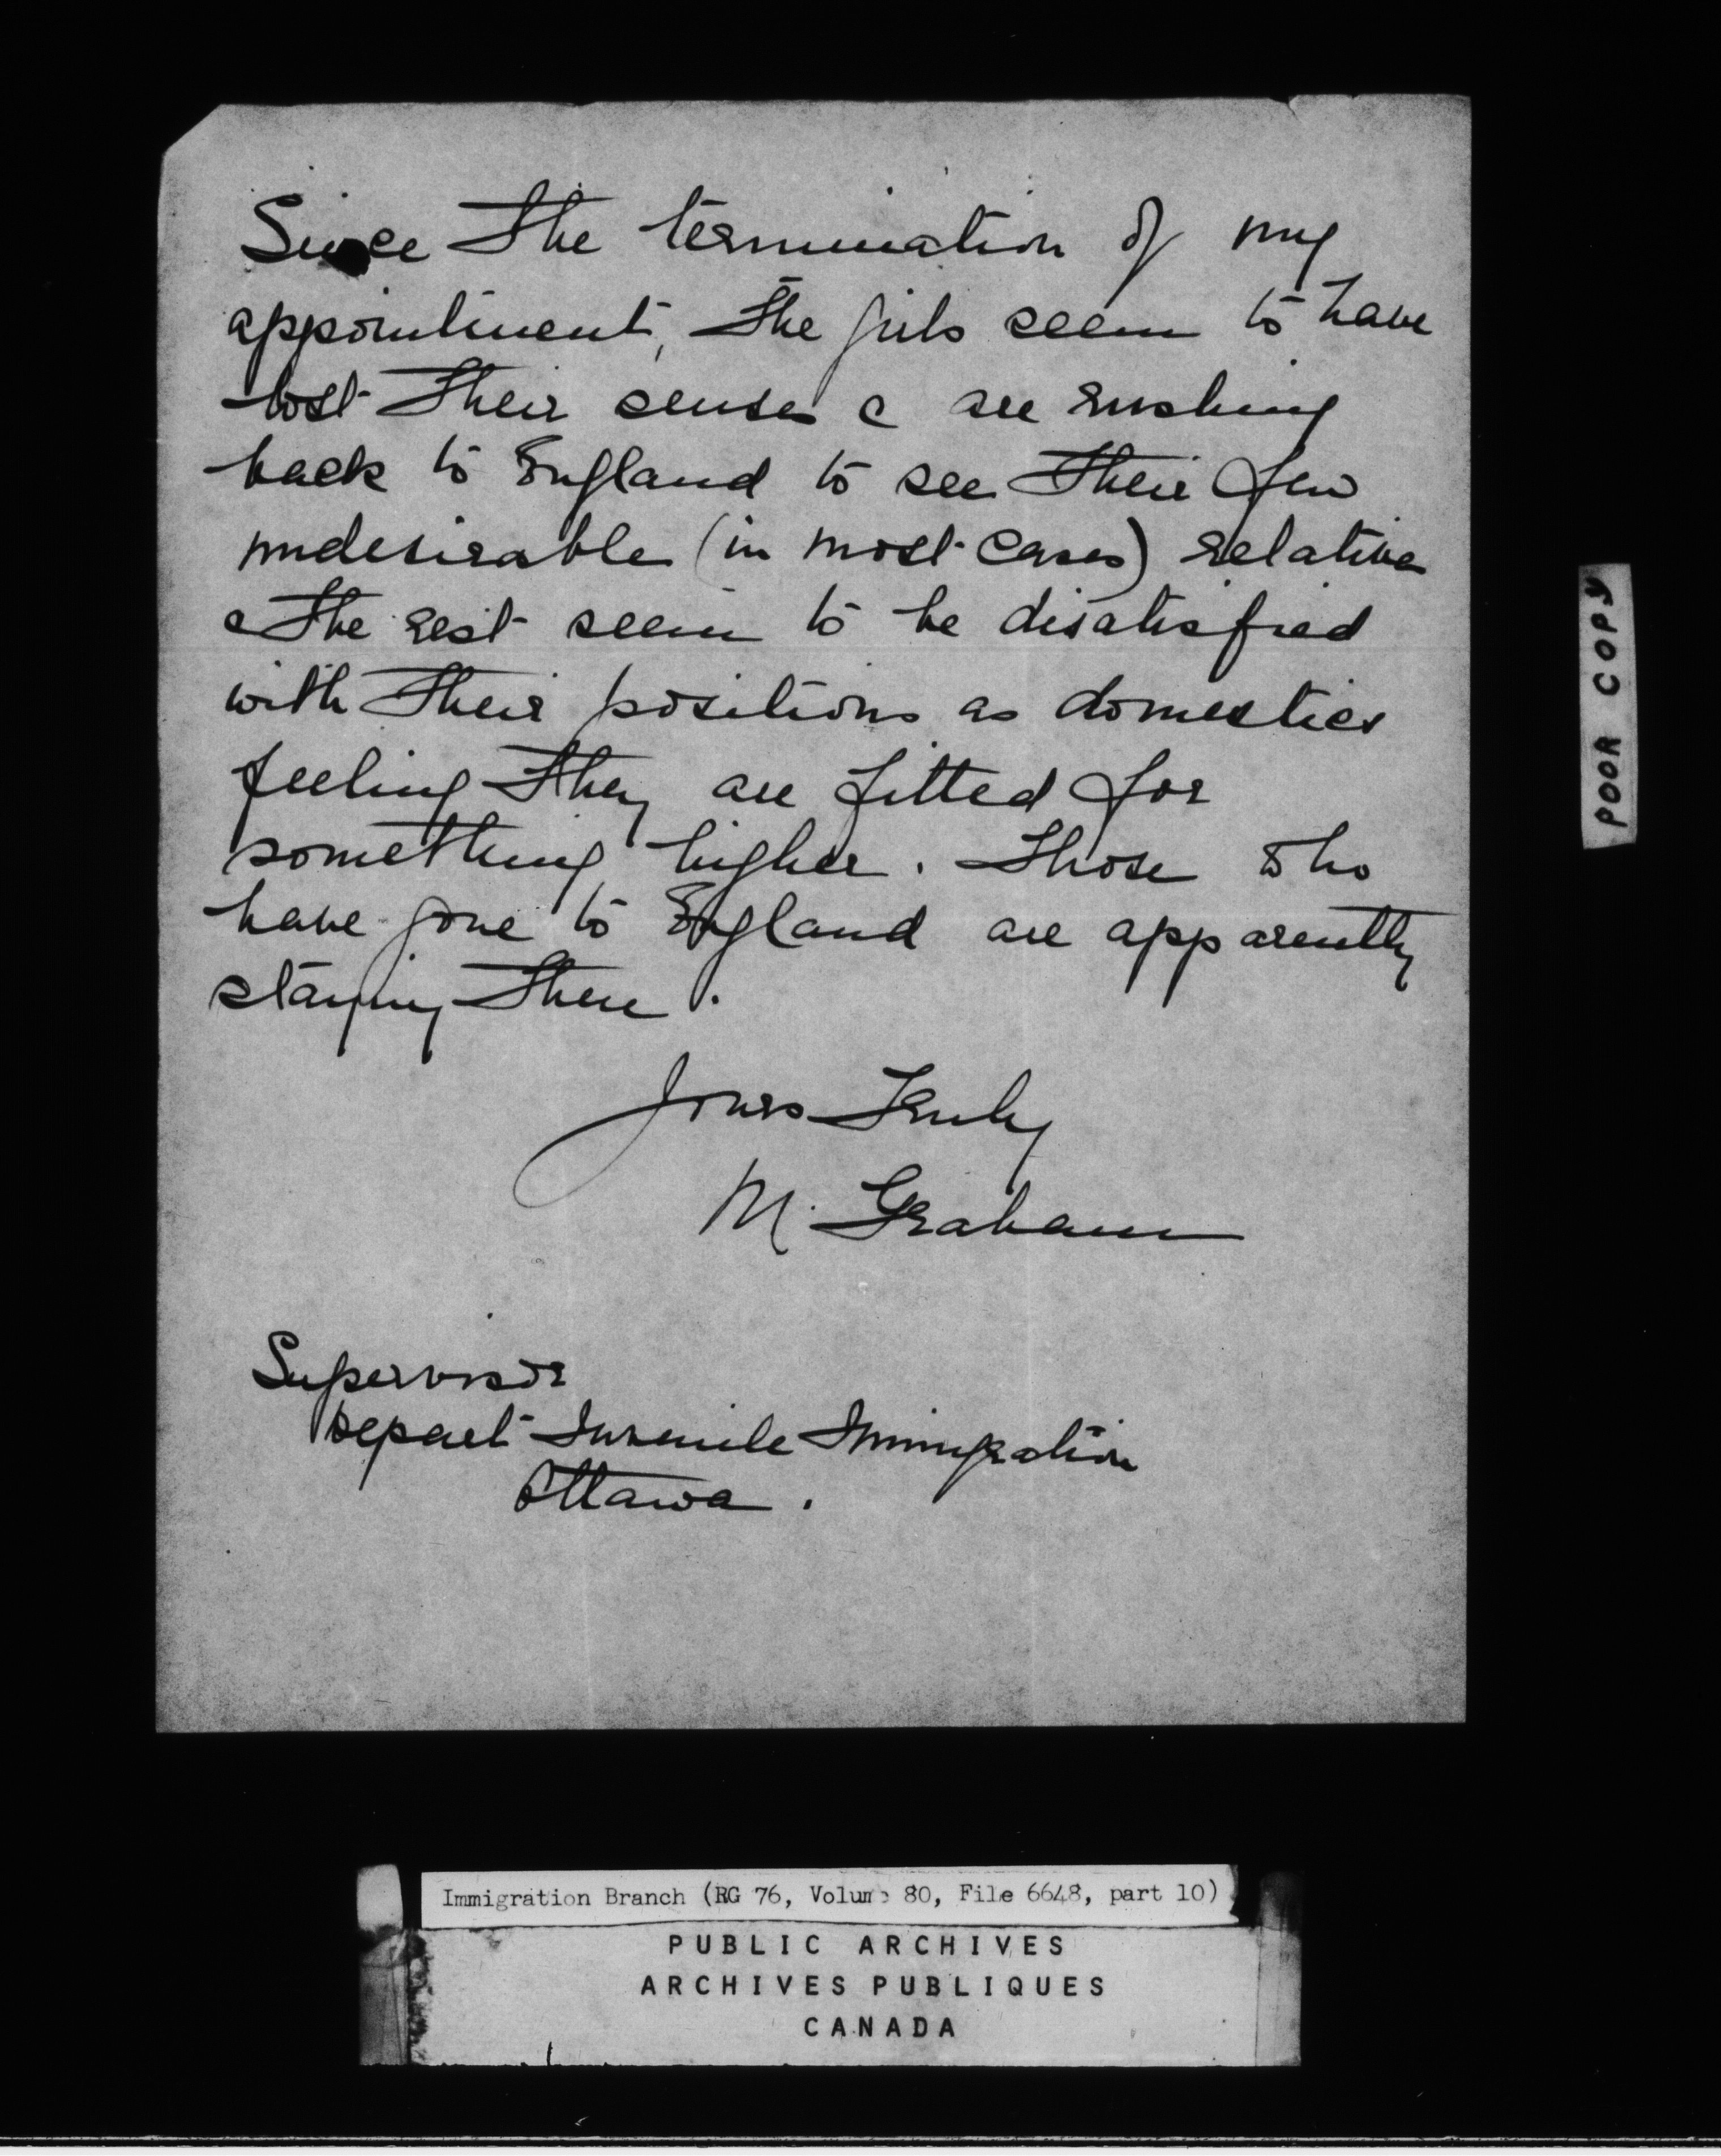 Since the termination of my
appointment, the girls seem to have
lost their senses & are rushing
back to England to see their few
undesirable (in most cases) relatives
& the rest seem to be disatisfied
with their positions as domestics
feeling they are fitted for
something higher. Those who
have gone to England are apparently
staying there.
Yours Truly
M. Graham
Supervisor
Depart Juvenile Immigration
Ottawa.
POOR COPY
Immigration Branch (RG 76, Volume 80, File 6648, part 10)
PUBLIC ARCHIVES
ARCHIVES PUBLIQUES
CANADA